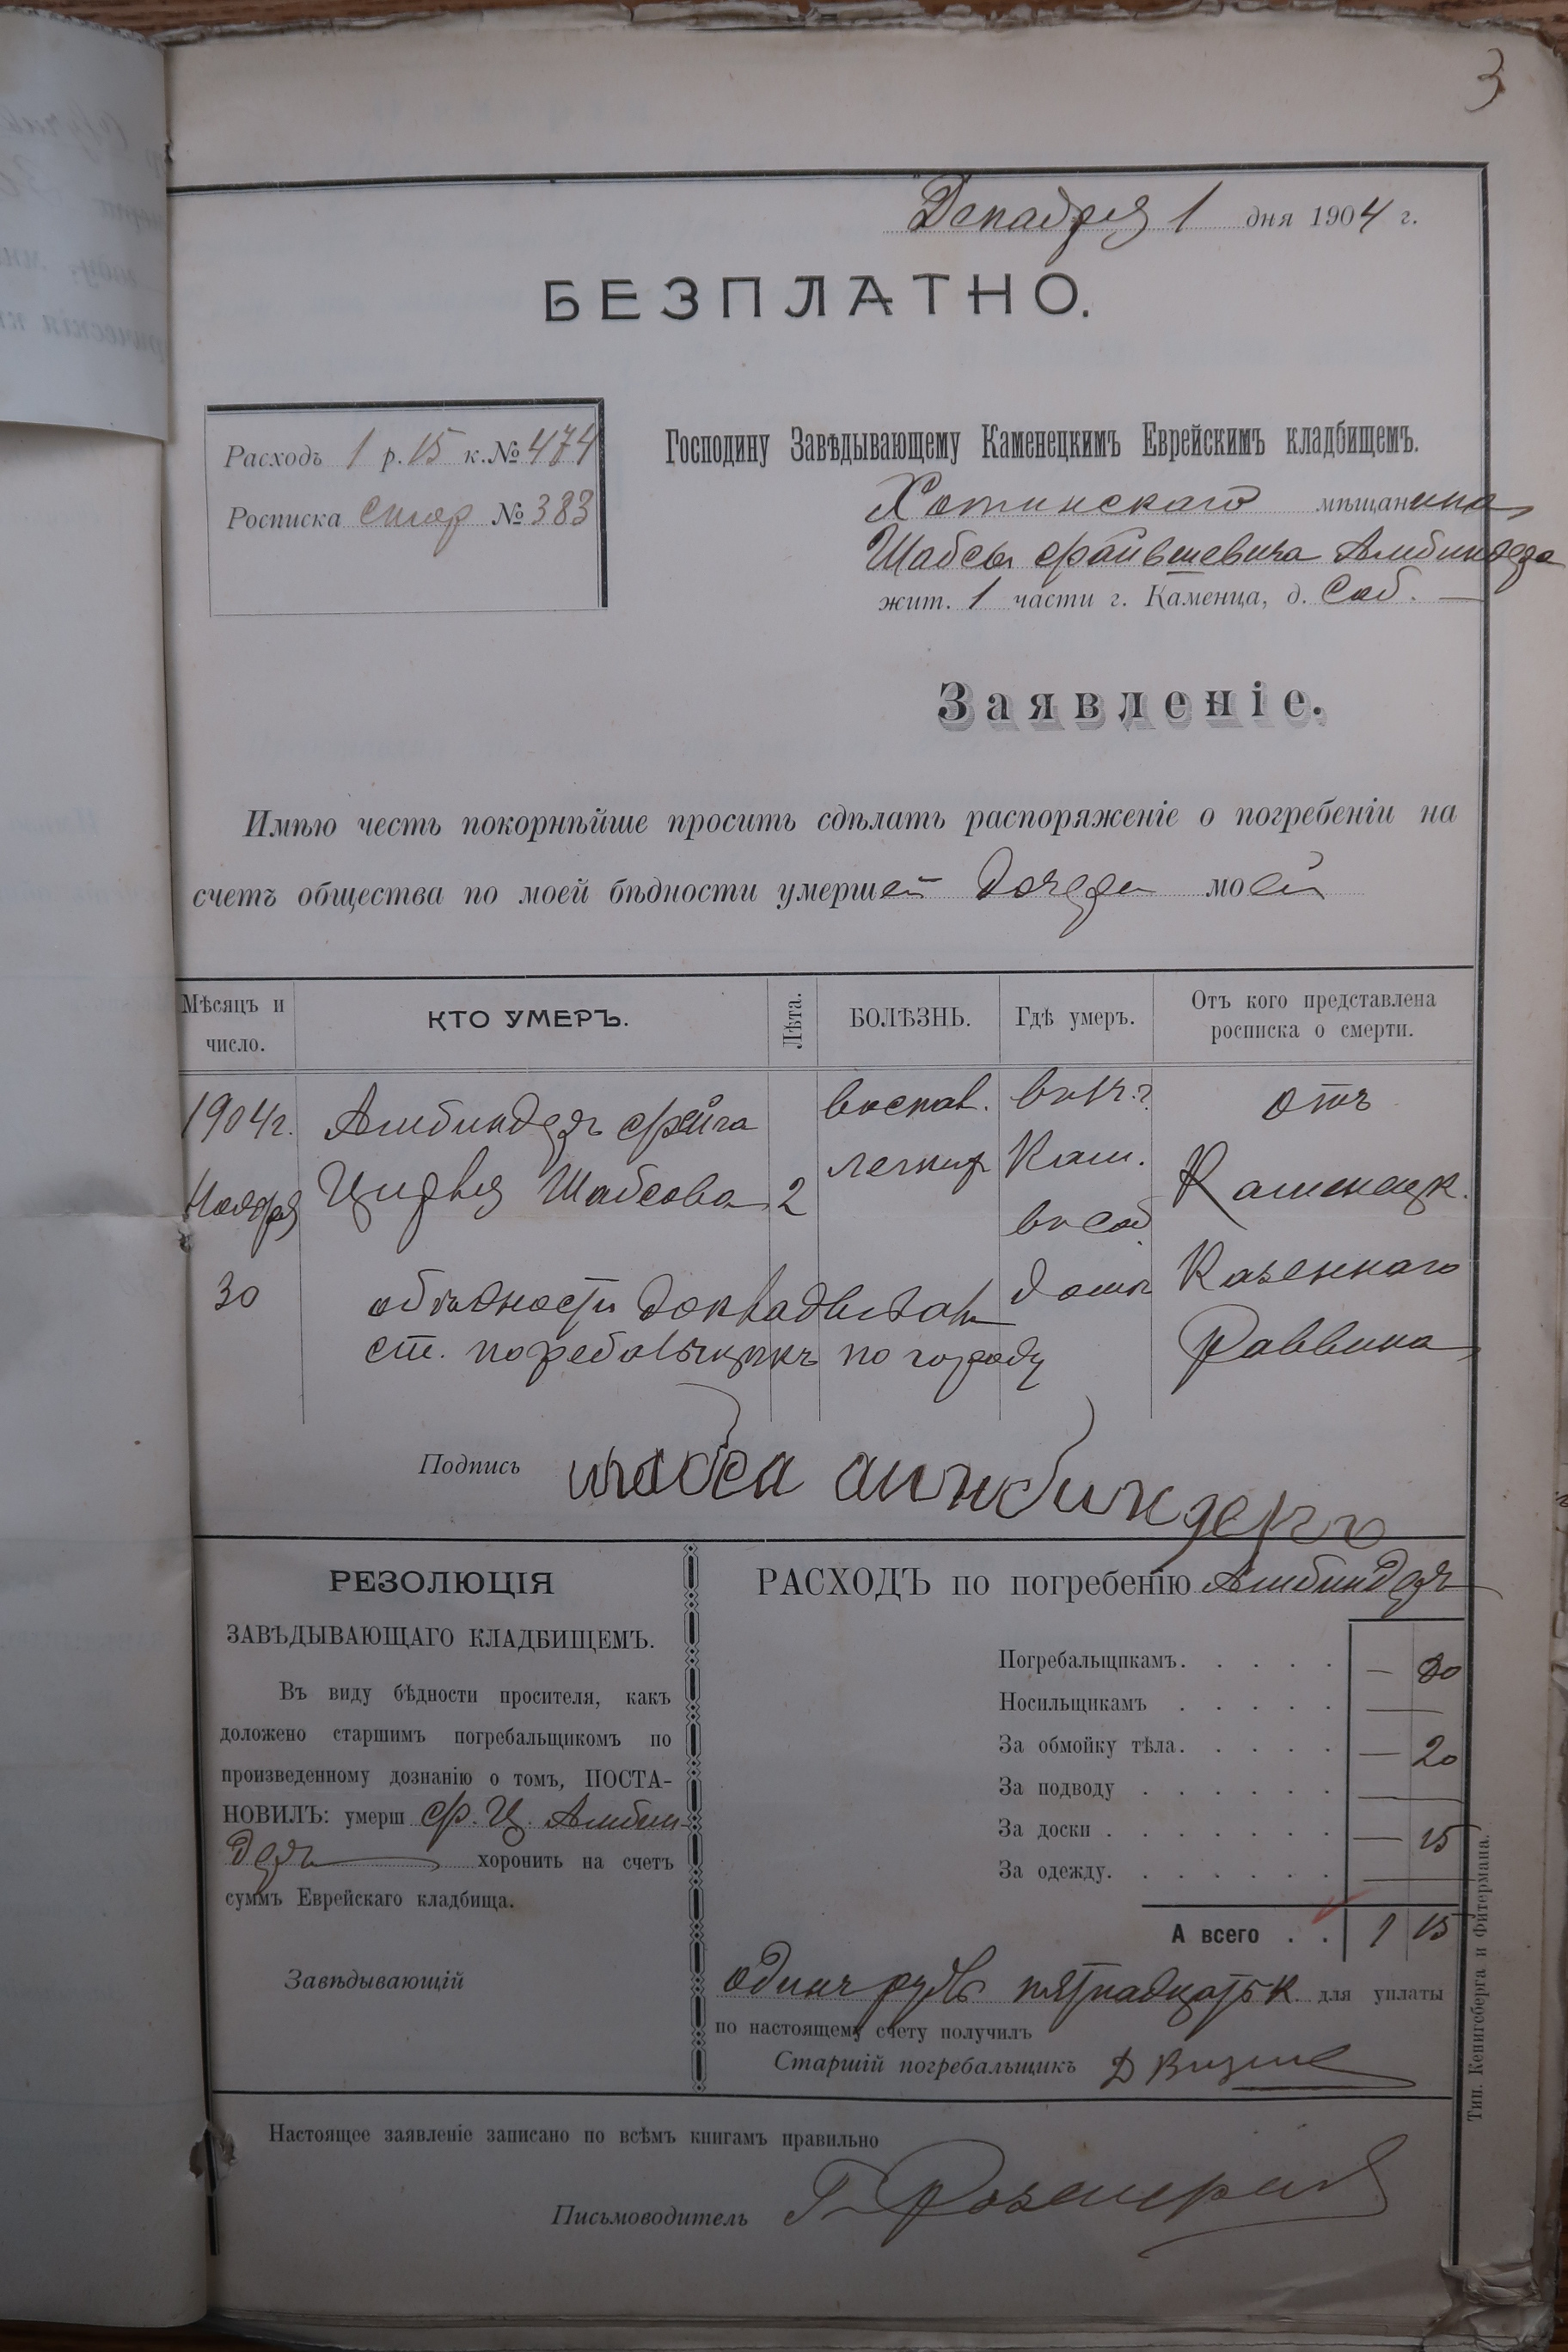 3
Декабря 1 дня 1904 г.
БЕЗПЛАТНО.
Расходъ 1 р. 15 к. № 474
Росписка № 383
Господину Завѣдывающему Каменецкимъ Еврейскимъ кладбищемъ.
Хотинскаго мѣщанина
Шабсы Файвшевича
жит. 1 части г. Каменца, д. Соб. —
Заявленіе.
Имѣю честь покорнѣйше просить сдѣлать распоряженіе о погребеніи на
счетъ общества по моей бѣдности умершей дочери моей
Мѣсяцъ и число.
КТО УМЕРЪ.
Лѣта.
БОЛѢЗНЬ.
Гдѣ умеръ.
Отъ кого представлена росписка о смерти.
1904 г. Фейга воспал. въ г. отъ
Ноября Шабсова 2 легких Кам. Каменецк.
въ соб.
30 домѣ Казеннаго
о бѣдности докладывалъ
ст. погребальщикъ по городу Раввина
Подпись шабса
РЕЗОЛЮЦІЯ
ЗАВѢДЫВАЮЩАГО КЛАДБИЩЕМЪ.
Въ виду бѣдности просителя, какъ
доложено старшимъ погребальщикомъ по
произведенному дознанію о томъ, ПОСТА-
НОВИЛЪ: умерш Ф. Ц.
хоронить на счетъ
суммъ Еврейскаго кладбища.
Завѣдывающій
РАСХОДЪ по погребенію
Погребальщикамъ. . . . . — 80
Носильщикамъ . . . . . —
За обмойку тѣла. . . . . — 20
За подводу . . . . . . —
За доски . . . . . . . — 15
За одежду. . . . . . . —
А всего . . 1 15
одинъ рубль пятнадцать к. для уплаты
по настоящему счету получилъ
Старшій погребальщикъ
Настоящее заявленіе записано по всѣмъ книгамъ правильно
Письмоводитель
Тип. Кенигсберга и Фитермана.